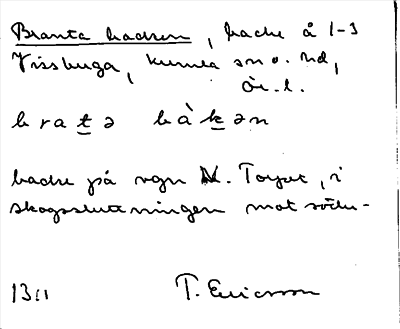 Branta backen, backe å 1-3
Vissbuga, Kumla sn o. hd,
Ör. l.
bratə bàkən
backe på ägan N. Torpet, i
skogssluttningen mot söder-
1311 T. Ericsson